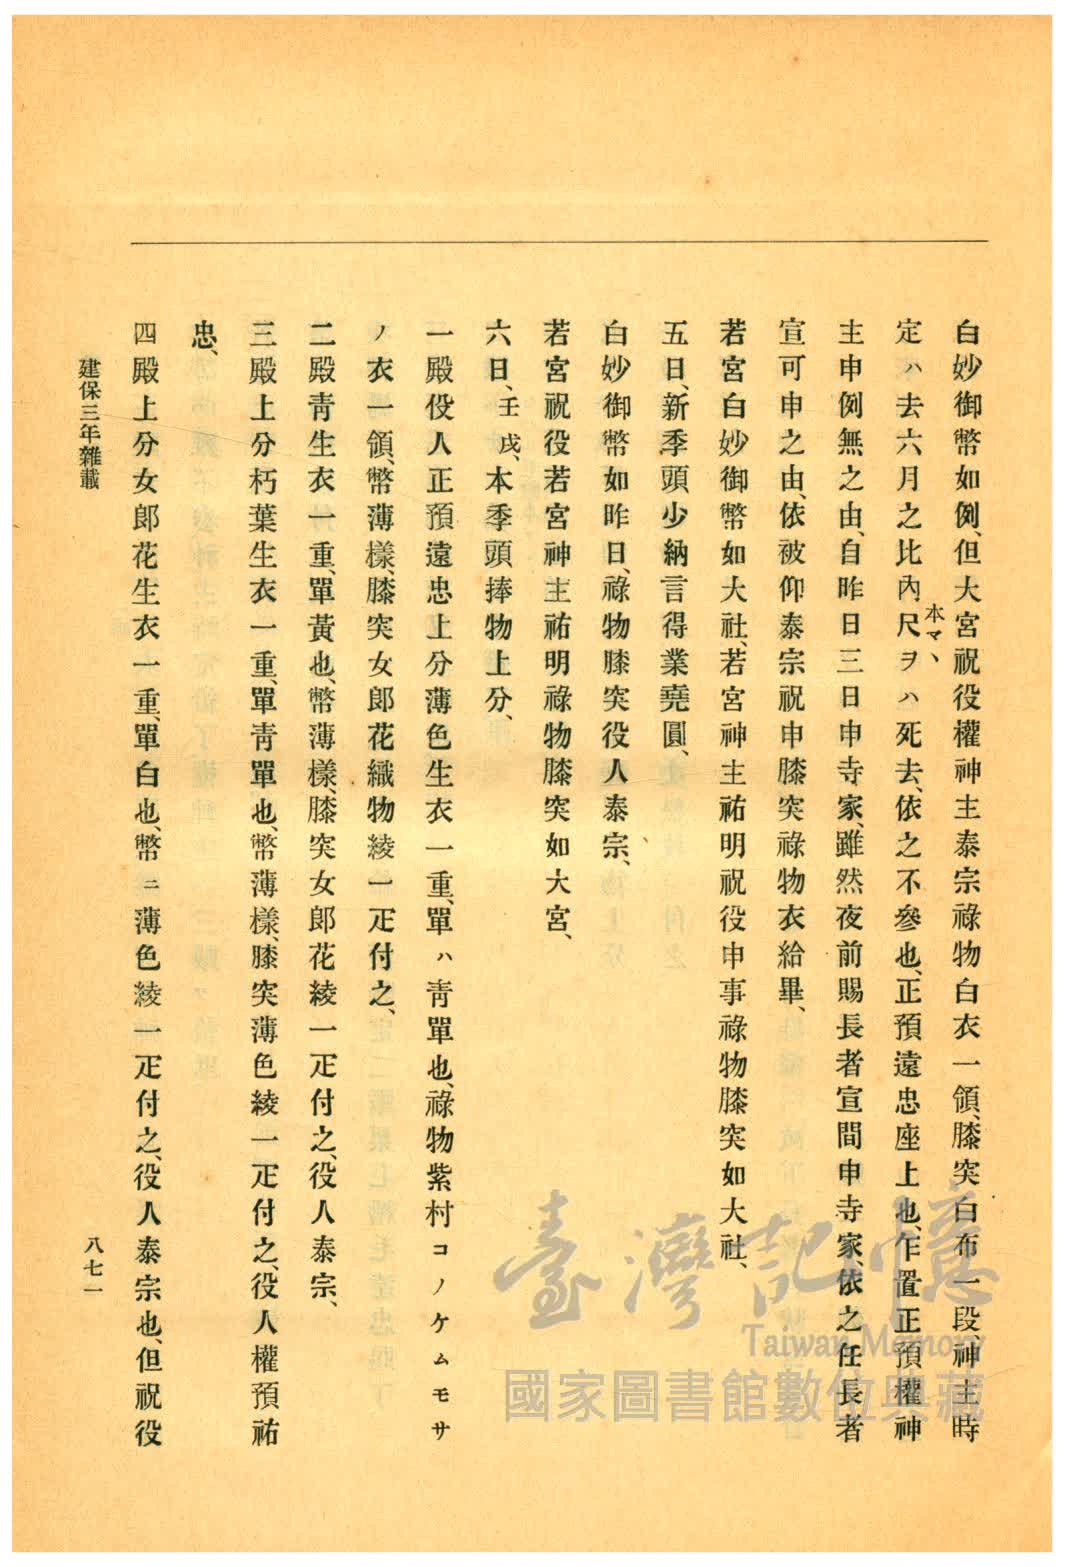 白妙御幣如例、但大宮祝役權神主泰宗祿物白衣一領、膝突白布一段、神主時
定ハ去六月之比內尺ヲハ死去、依之不參也、正預遠忠座上也、乍置正預權神
本マヽ
主申例無之由、自昨日三日申寺家、雖然夜前賜長者宣間申寺家、依之任長者
宣可申之由、依被仰泰宗祝申膝突祿物衣給畢、
若宮白妙御幣如大社、若宮神主祐明祝役申事祿物膝突如大社、
五日、新季頭、少納言得業堯圓、
白妙御幣如昨日、祿物膝突役人泰宗、
若宮祝役若宮神主祐明祿物膝突如大宮、
六日、壬戌、本季頭捧物上分、
一殿役人正預遠忠上分薄色生衣一重、單ハ靑單也、祿物紫村コノケムモサ
ノ衣一領、幣薄樣、膝突女郎花織物綾一疋付之、
二殿靑生衣一重、單黃也、幣薄樣、膝突女郎花綾一疋付之、役人泰宗、
三殿上分朽葉生衣一重、單靑單也、幣薄樣、膝突薄色綾一疋付之、役人權預祐
忠、
四殿上分女郎花生衣一重、單白也、幣ニ薄色綾一疋付之、役人泰宗也、但祝役
建保三年雜載
八七一
臺灣記憶
Taiwan Memory
國家圖書館數位典藏